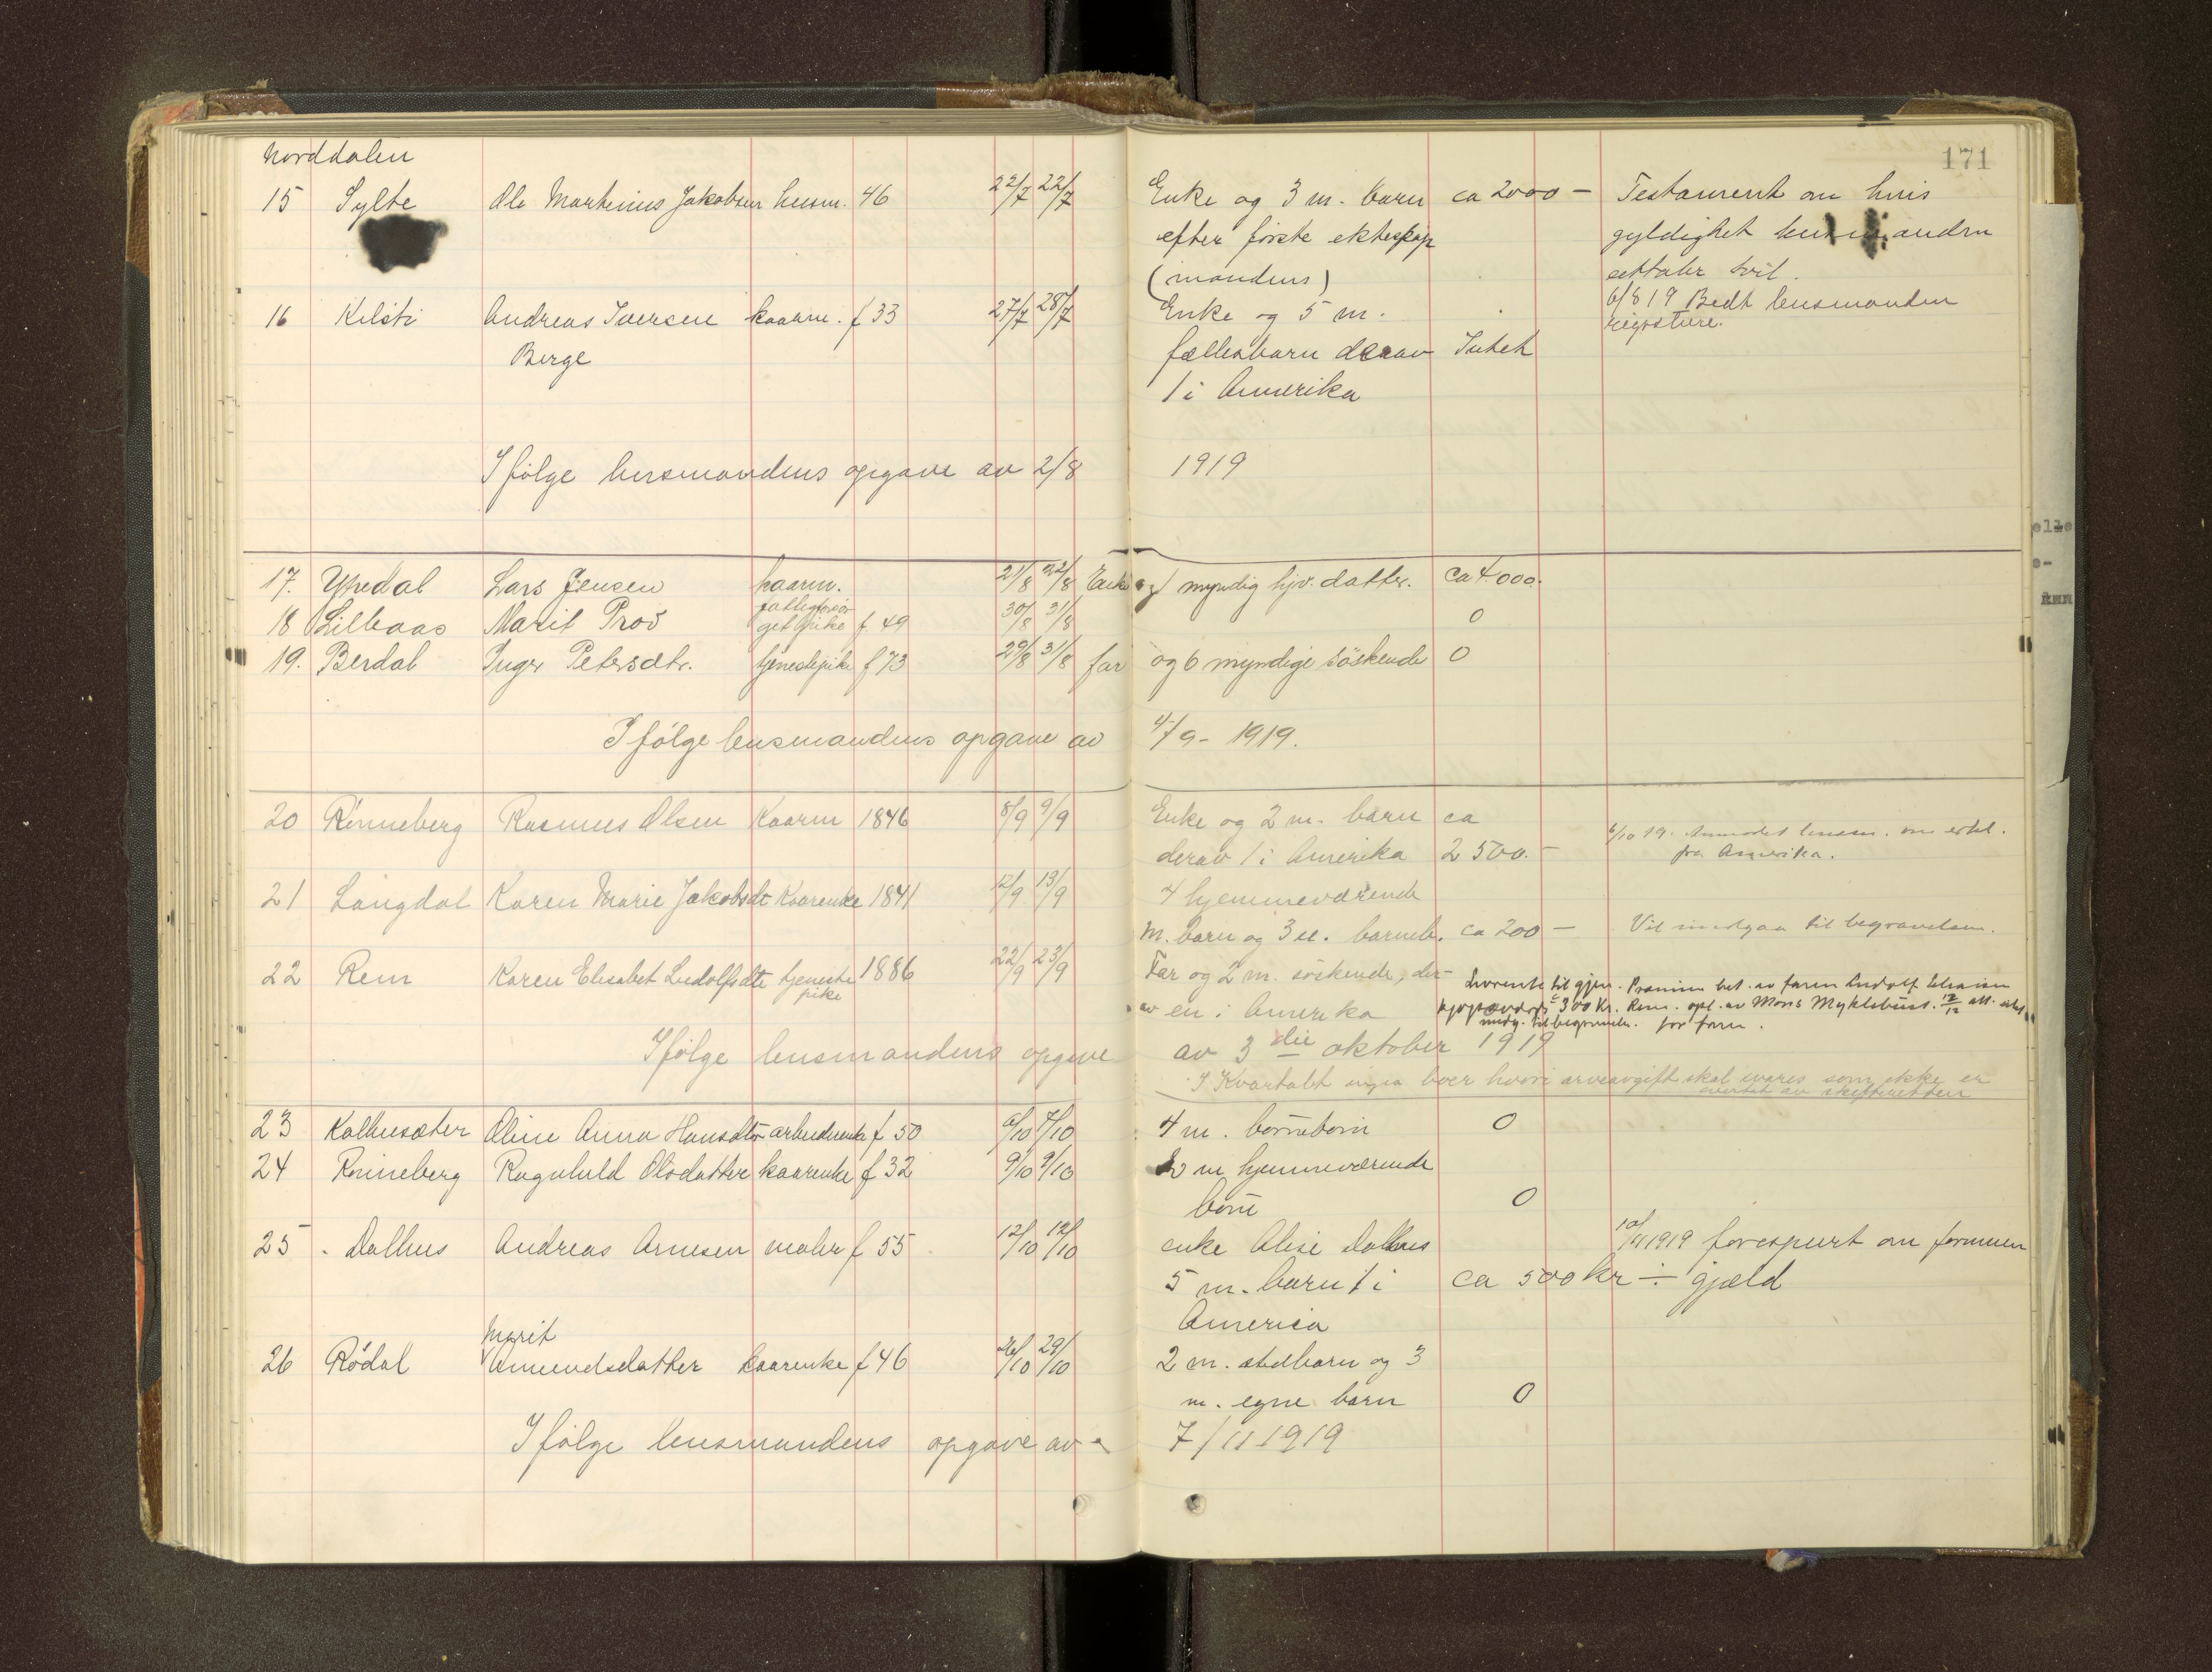 Norddalen
171
15 Sylte Ole Martinius Jakobsen husm. 46 22/7 22/7 Enke og 3 m. barn ca 2000 — Testament om hvis
efter første ekteskap gyldighet andre
(mandens) tvil.
16 Kilsti Andreas Iversen kaarm. f 33 27/7 28/7 Enke og 5 m. 6/8 19 Bedt lensmanden
registrere.
Berge fællesbarn derav Intet
1 i Amerika
Ifølge lensmandens opgave av 2/8 1919
17. Ytredal Lars Jensen kaarm. 21/8 22/8 Enke og 1 myndig hjv. datter. ca 4.000.
18 Lillaas Marit Pros fattigforsør
get pike f. 49 30/8 31/8 0
19. Berdal Inger Petersdtr. tjenestepike f 73 29/8 31/8 far og 6 myndige søskende 0
Ifølge lensmandens opgave av 4/9 - 1919.
20 Rønneberg Rasmus Olsen Kaarm 1846 8/9 9/9 Enke og 2 m. barn ca
derav 1 i Amerika 2 500.— 6/10 19. Anmodet lensm. om erkl.
fra Amerika.
21 Langdal Karen Marie Jakobsdt Kaarenke 1841 12/9 13/9 4 hjemmeværende
m. barn og 3 u. barneb. ca 200 — Vil medgaa til begravelsen.
22 Rem Karen Elisabet Ludolfsdt tjeneste
pike 1886 22/9 23/9 Far og 2 m. søskende, der-
av en i Amerika
til gjen. Præmien bet. av faren Ludolf
300 Kr. Rem. opl. av Mons Myklebust. 12/12 att.
medg. til begravelse. for faren.
Ifølge lensmandens opgave av 3die oktober 1919
I Kvartalet ingen boer hvori arveavgift skal svares som ikke er
overtat av skifteretten
23 Kalhusæter Oline Anna Hansdtr arbeiderenke f 50 6/10 7/10 4 m. børnebørn 0
24 Rønneberg Ragnhild Olsdatter kaarenke f 32 9/10 9/10 m hjemmeværende
børn 0
25 . Dalhus Andreas Arnesen maler f 55 12/10 12/10 enke Alise Dalhus 10/11 1919 forespurt om formuen
5 m. barn 1 i ca 500 kr ÷ gjæld
America
26 Rødal Marit
Amundsdatter kaarenke f 46 26/10 29/10 2 m. stedbarn og 3
m. egne barn 0
Ifølge lensmandens opgave av 7/11 1919
elle
e-